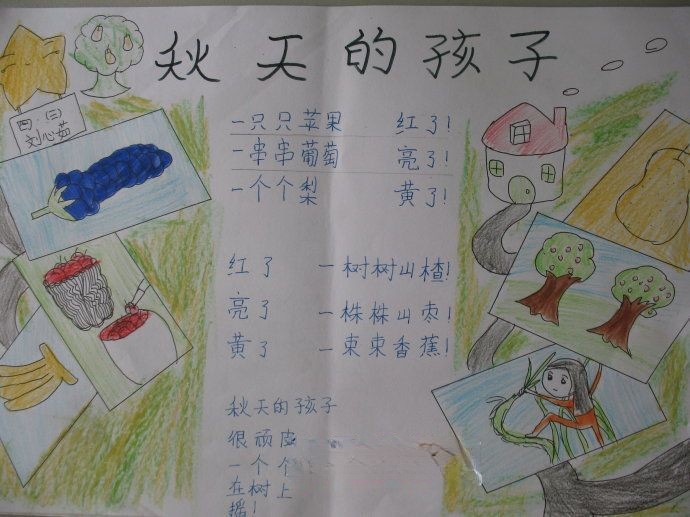 秋天的孩子
四.(三)
刘心茹
一只只苹果 红了!
一串串葡萄 亮了!
一个个梨 黄了!
红了 一树树山楂!
亮了 一株株山枣!
黄了 一束束香蕉!
秋天的孩子
很顽皮
一个个
在树上
摇!